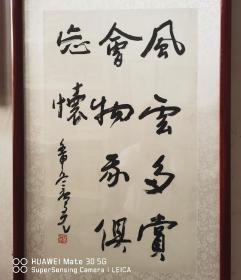 風雲多賞
會物我俱
忘懷
HUAWEI Mate 30 5G
SuperSensing Camera | LEICA